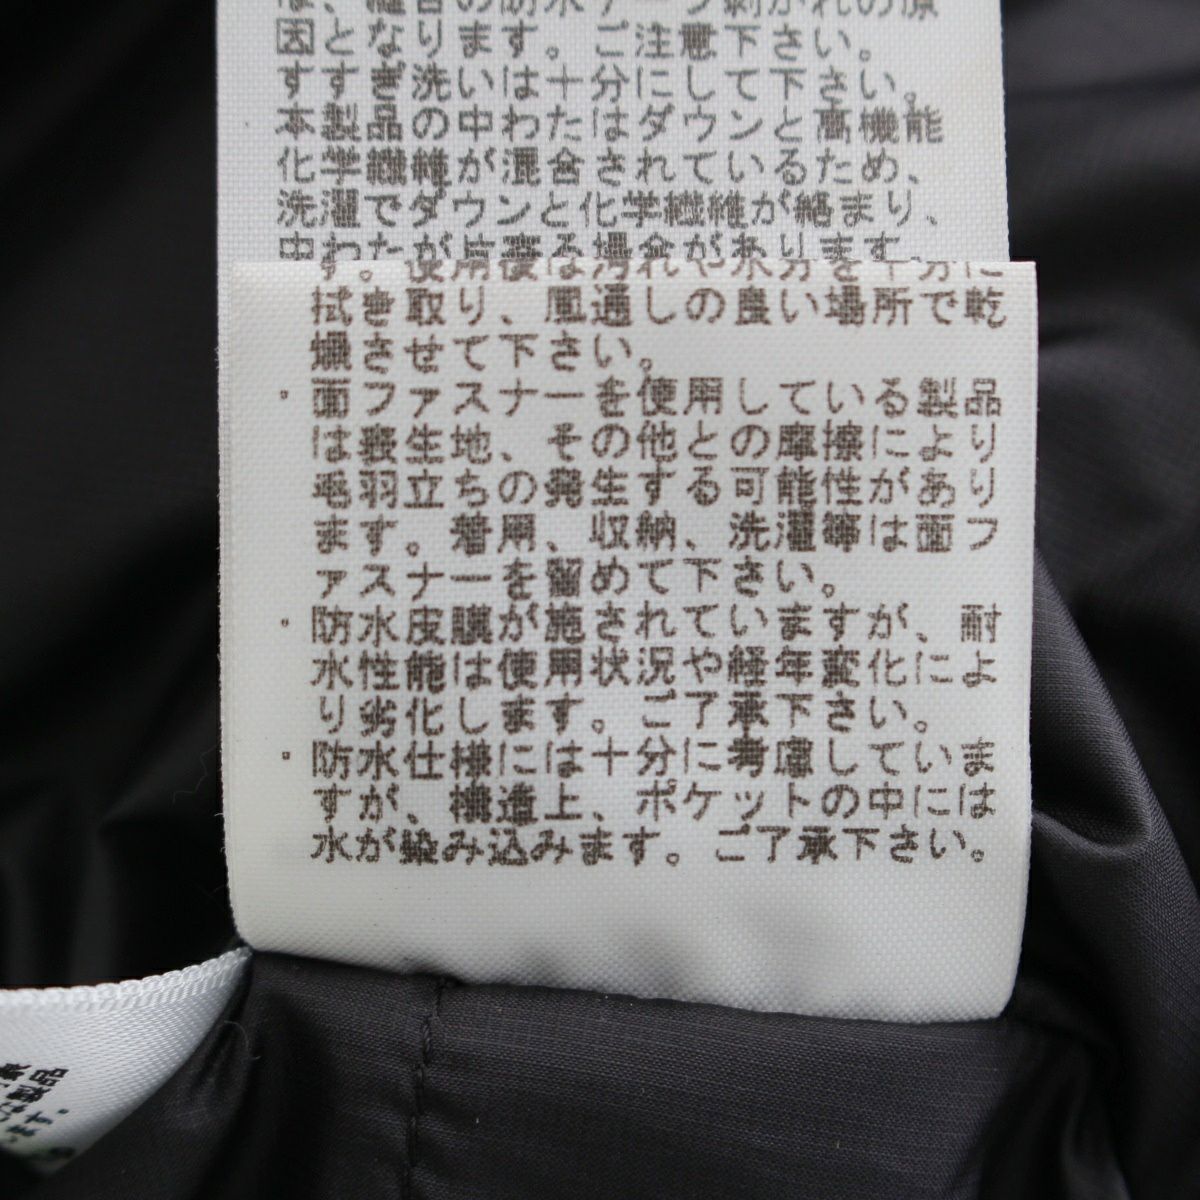 因となります。ご注意下さい。
すすぎ洗いは十分にして下さい。
本製品の中わたはダウンと高機能
化学繊維が混合されているため、
洗濯でダウンと化学繊維が絡まり、
中わたが片寄る場合があります。
す。使用後は汚れや水分を十分に
拭き取り、風通しの良い場所で乾
燥させて下さい。
・面ファスナーを使用している製品
は表生地、その他との摩擦により
毛羽立ちの発生する可能性があり
ます。着用、収納、洗濯等は面フ
ァスナーを留めて下さい。
・防水皮膜が施されていますが、耐
水性能は使用状況や経年変化によ
り劣化します。ご了承下さい。
・防水仕様には十分に考慮していま
すが、構造上、ポケットの中には
水が染み込みます。ご了承下さい。
品
ます。